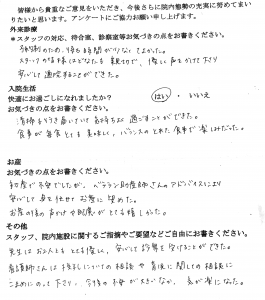 皆様から貴重なご意見をいただき、今後さらに院内態勢の充実に努めてまい
りたいと思います。アンケートにご協力お願い申し上げます。
外来診療
＊スタッフの対応、待合室、診察室等お気づきの点をお書きください。
予約制のため、待ち時間が少なくてよかった。
スタッフの皆様はどなたも親切で、優しく声をかけて下さり
安心して通院することができた。
入院生活
快適にお過ごしになれましたか？ はい ・ いいえ
お気づきの点をお書きください。
清掃も行き届いていて気持ちよく過ごすことができた。
食事が毎食とても美味しく、バランスのとれた食事で楽しみだった。
お産
お気づきの点をお書きください。
初産で不安でしたが、ベテラン助産師さんのアドバイスにより
安心して身を任せお産に望めた。
お産の時の声かけや配慮がとても嬉しかった。
その他
スタッフ、院内施設に関するご指摘やご要望などご自由にお書きください。
先生はお二人ともとても優しく、安心して診察を受けることができた。
看護師さんには授乳についての相談や育児に関しての相談に
こまめにのって下さり、今後の不安が大きい中、気が楽になった。